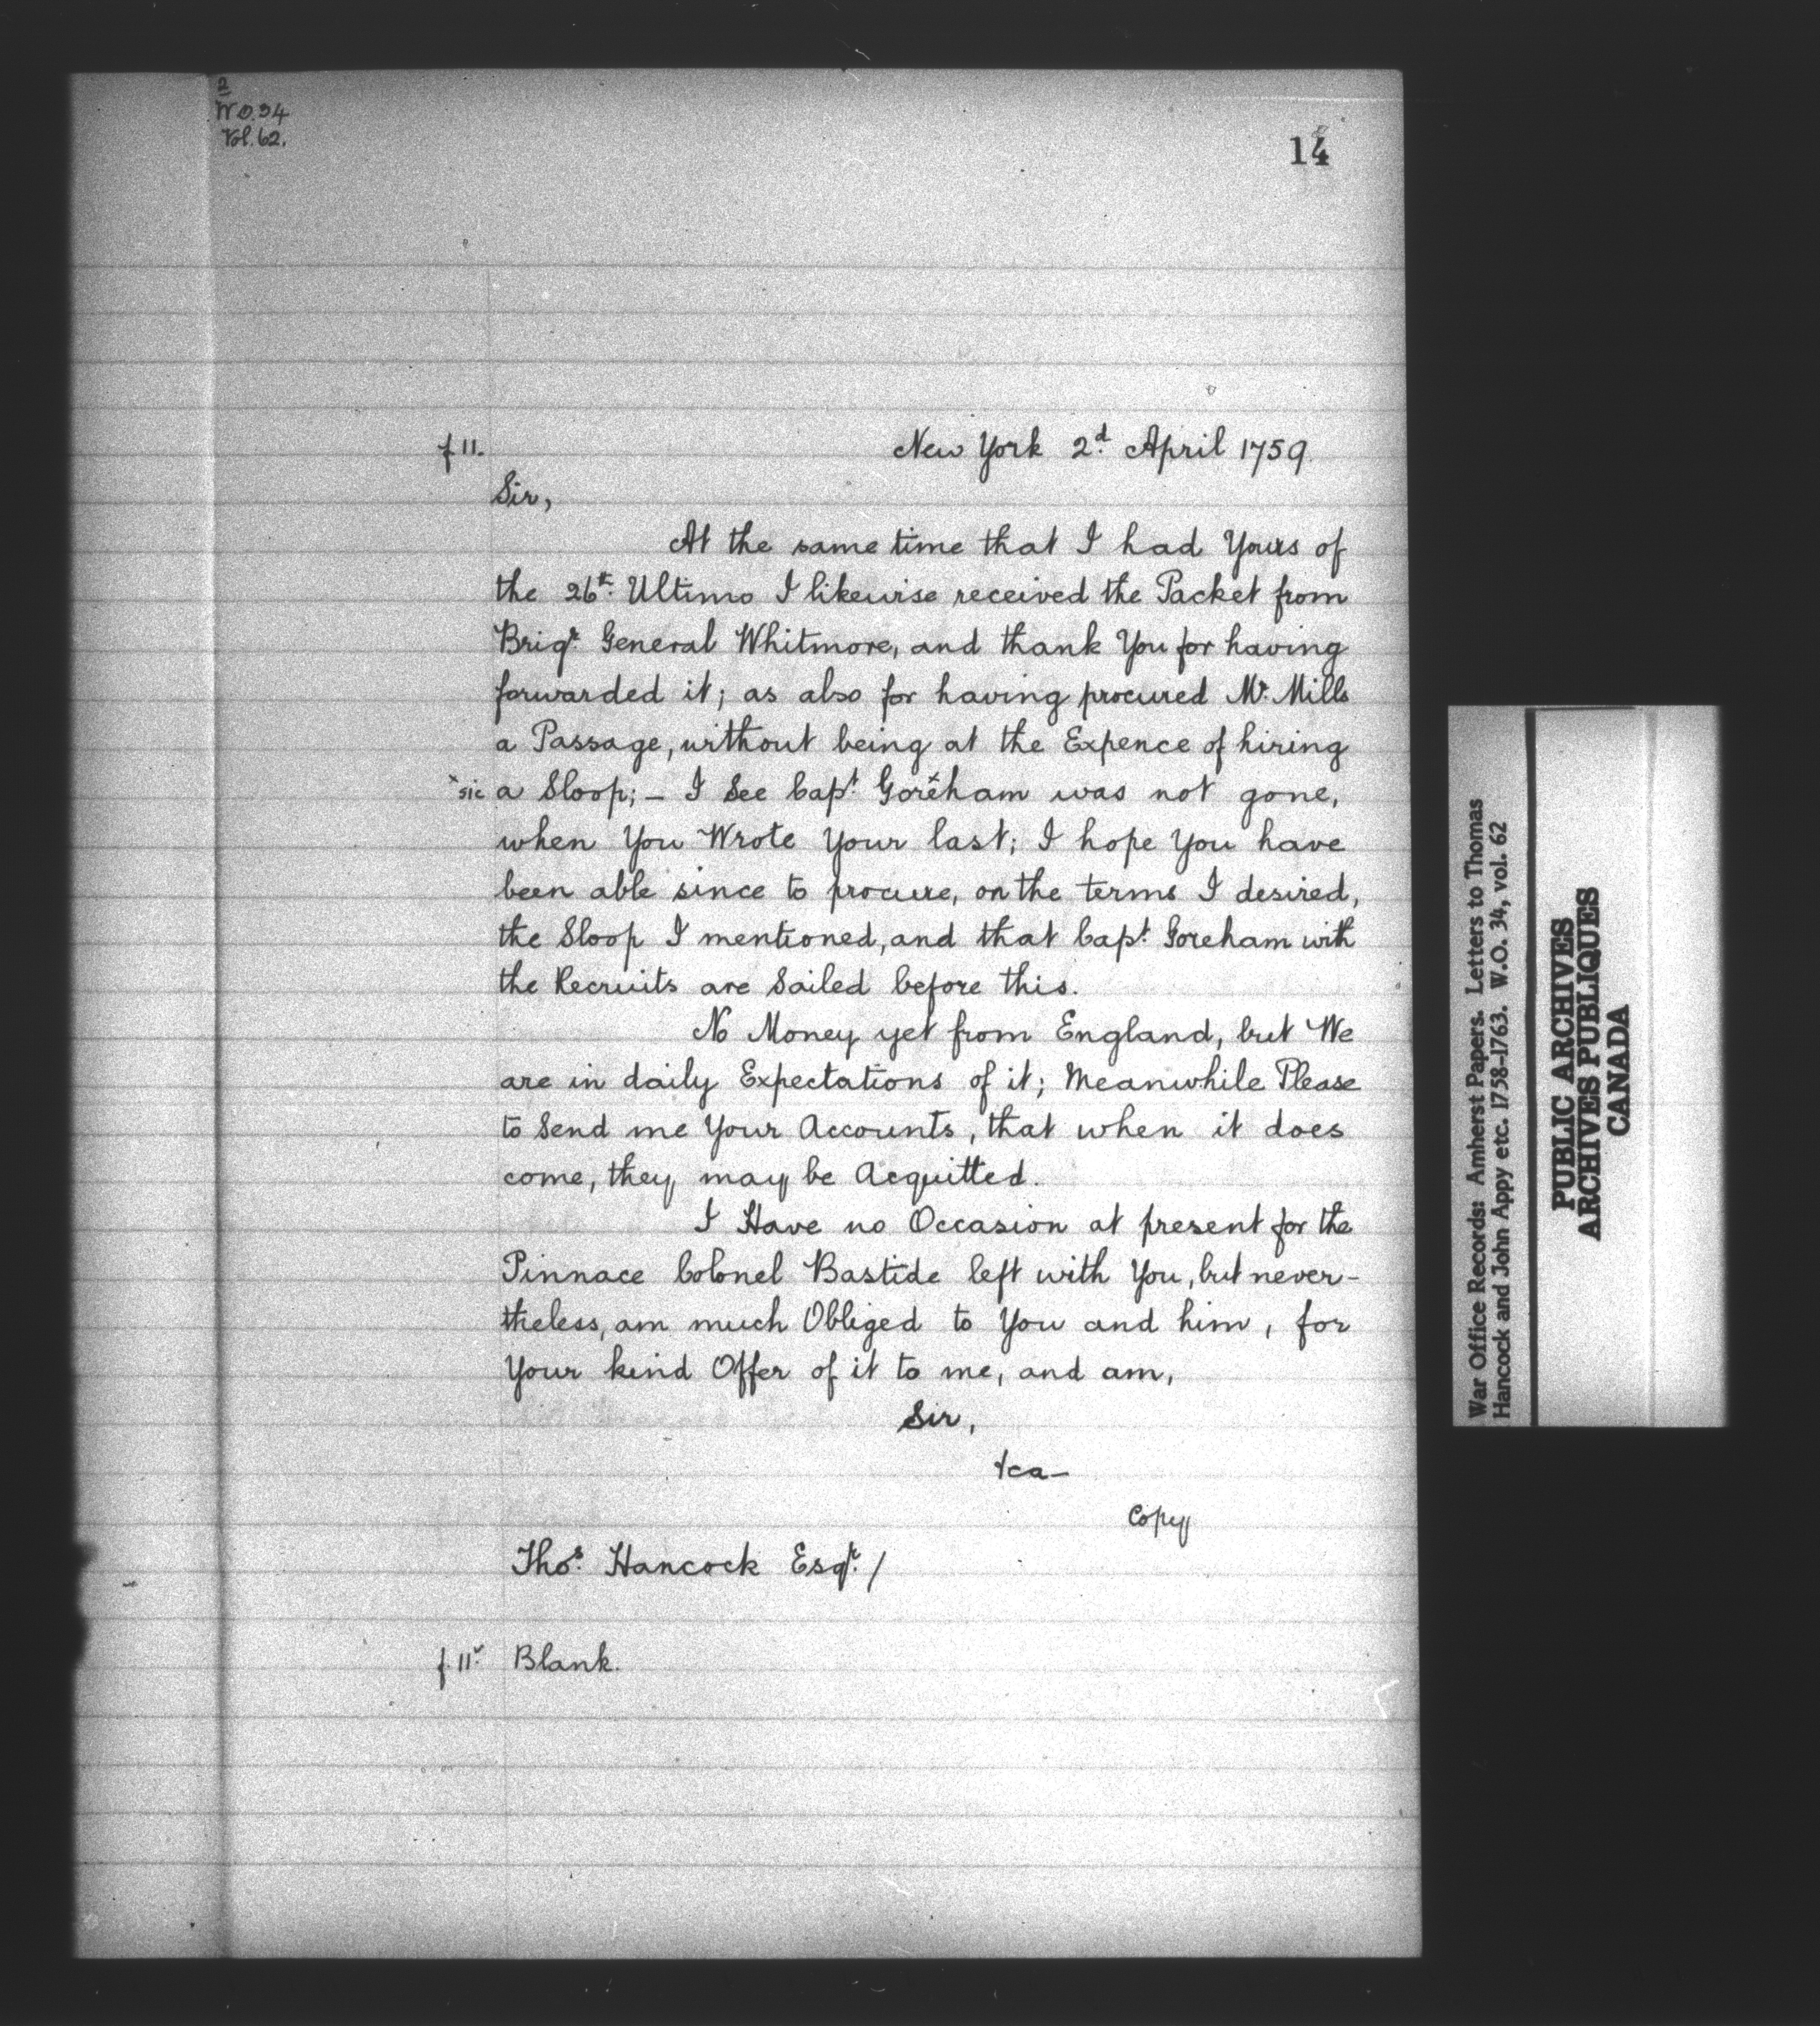 2
W O. 34
Vol. 62.
14
f 11.
New York 2d. April 1759.
Sir,
At the same time that I had Yours of
the 26th. Ultimo I likewise received the Packet from
Brigr. General Whitmore, and thank You for having
forwarded it; as also for having procured Mr. Mills
a Passage, without being at the Expence of hiring
x sic a Sloop; – I See Capt. Gorexham was not gone,
when You Wrote Your last; I hope You have
been able since to procure, on the terms I desired,
the Sloop I mentioned, and that Capt. Goreham with
the Recruits are Sailed before this.
No Money yet from England, but We
are in daily Expectations of it; Meanwhile Please
to Send me Your Accounts, that when it does
come, they may be Acquitted.
I Have no Occasion at present for the
Pinnace Colonel Bastide left with You, but never-
theless, am much Obliged to You and him, for
Your kind Offer of it to me, and am,
Sir,
&ca–
Copy
Thos. Hancock Esqr. /
f. 11v. Blank.
War Office Records: Amherst Papers. Letters to Thomas
Hancock and John Appy etc. 1758-1763. W.O. 34, vol. 62
PUBLIC ARCHIVES
ARCHIVES PUBLIQUES
CANADA